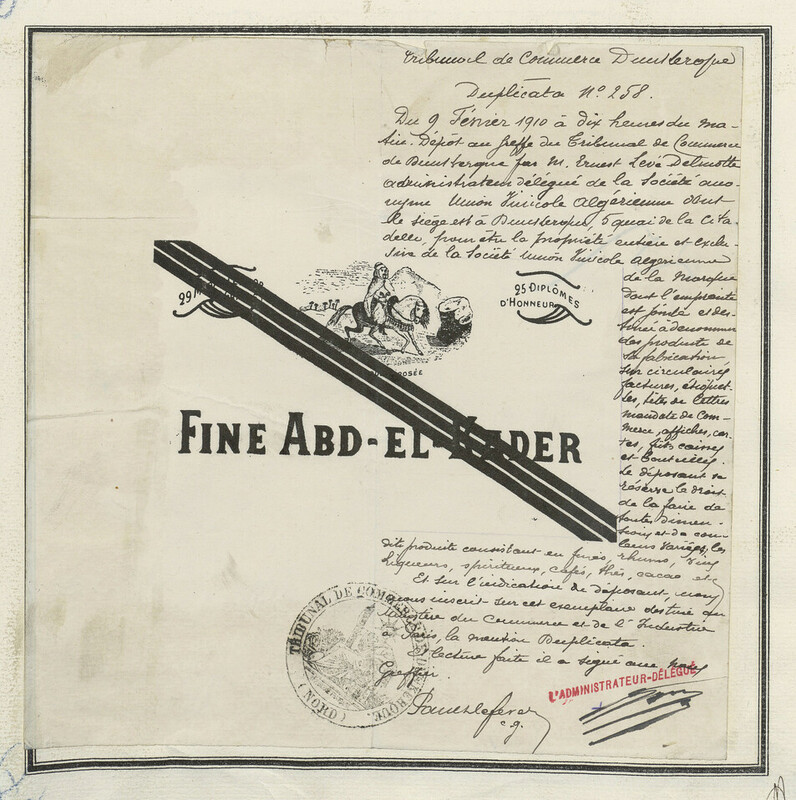 Tribunal de Commerce Dunkerque
Duplicata N° 258.
Du 9 Février 1910 à dix heures du ma-
tin. Dépôt au Greffe du Tribunal de Commerce
de Dunkerque par M. Ernest Levé Delmotte
administrateur délégué de la Société ano-
nyme Union Vinicole Algérienne dont
le siège est à Dunkerque, 5 quai de la Cita-
delle, pour être la propriété entière et exclu-
sive de la Société Union Vinicole Algérienne
de la Marque
dont l'empreinte
est jointe et des-
tinée à dénommer
des produits de
sa fabrication,
sur circulaires
factures, étiquet-
tes, têtes de lettres
mandats de Com-
merce, affiches, car-
tes, fûts caisses
et bouteilles.
Le déposant se
réserve le droit
de la faire de
toutes dimen-
sions et de cou-
leurs variées, les
29
25 DIPLÔMES
D'HONNEUR
OSÉE
FINE ABD-EL-KADER
dits produits consistant en fines, rhums, vins
liqueurs, spiritueux, cafés, thés, cacao etc
Et sur l'indication du déposant, nous
avons inscrit sur cet exemplaire destiné au
Ministère du Commerce et de l'Industrie
à Paris, la mention Duplicata.
Et lecture faite il a signé avec nous
Greffier.
TRIBUNAL DE COMMERCE DUNKERQUE
(NORD)
L'ADMINISTRATEUR-DÉLÉGUÉ
c.g.